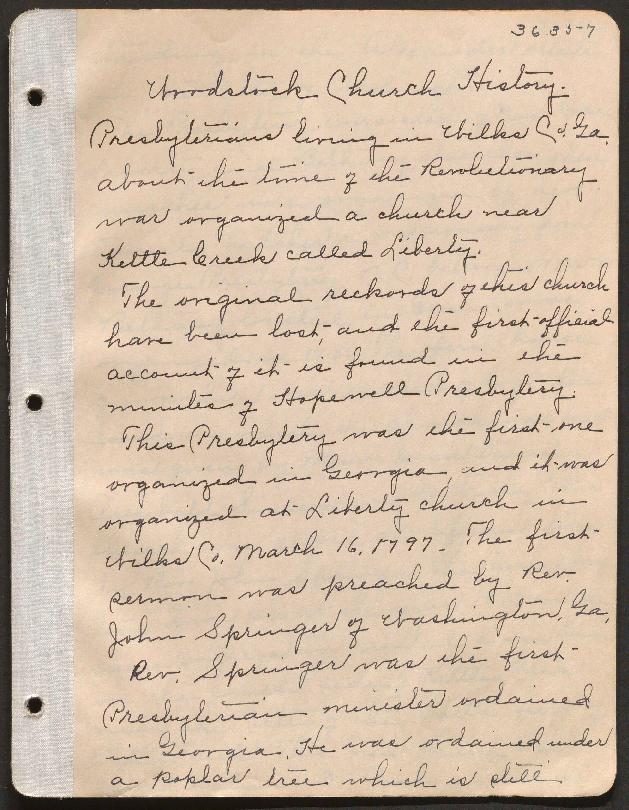 36357
Woodstock Church History.
Presbyterians living in Wilks Co. Ga.
about the time of the Revolutionary
war organized a church near
Kettle Creek called Liberty.
The original reckords of this church
have been lost, and the first official
account of it is found in the
minutes of Hopewell Presbytery.
This Presbytery was the first one
organized in Georgia, and it was
organized at Liberty church in
Wilks Co. March 16, 1797. The first
sermon was preached by Rev.
John Springer of Washington, Ga,
Rev. Springer was the first
Presbyterian minister ordained
in Georgia. He was ordained under
a poplar tree which is still